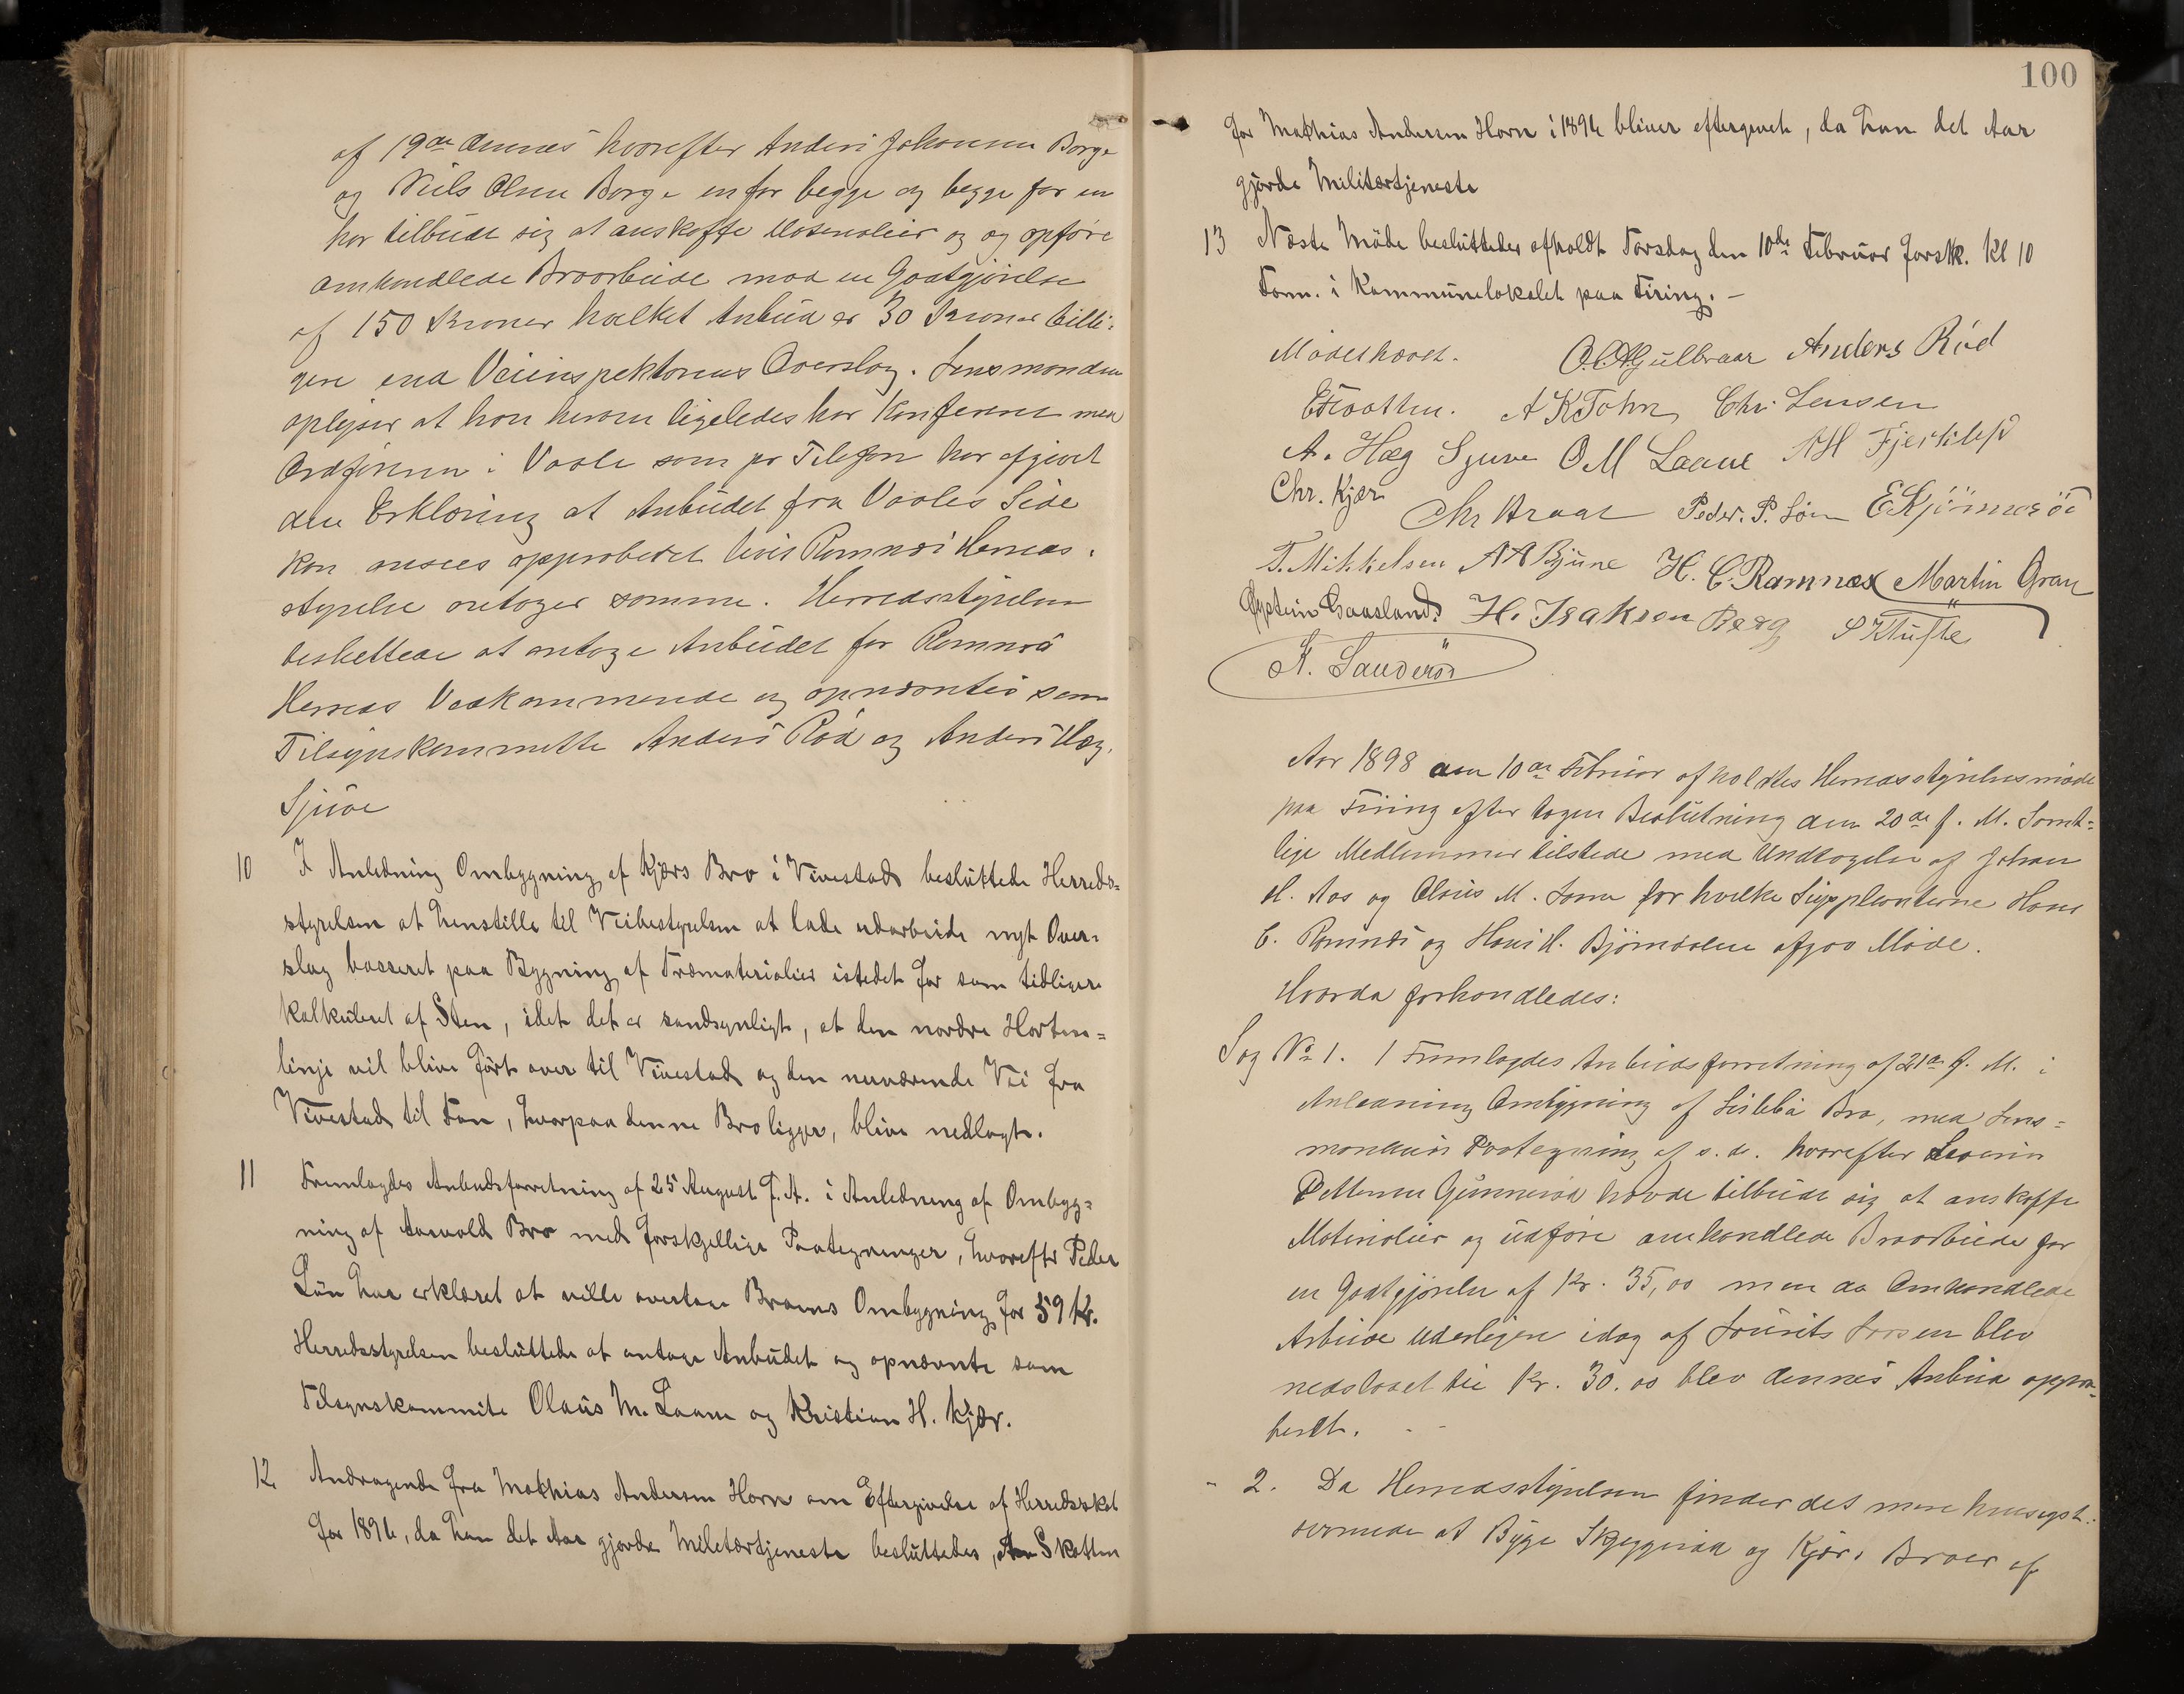 af 19de dennes hvorefter Anders Johansen Borge
og Niels Olsen Borge en for begge og begge for en
har tilbudt sig at anskaffe Materialier og og opføre
omhandlede Broarbeide mod en Godtgjørelse
af 150 Kroner hvilket Anbud er 30 Kroner billi-
gere end Veiinspektorens Overslag. Lensmanden
oplyser at han herom ligeledes har konfereret med
Ordføreren i Vaale som pr Telefon har afgivet
den Erklæring at Anbudet fra Vaales Side
kan ansees approberet hvis Ramnæs Herreds-
styrelse antager samme. Herredsstyrelsen
besluttede at antage Anbudet for Ramnæs
Herreds Vedkommende og opnævntes som
Tilsynskommitte Anders Rød og Anders Hæg.
Sjuve
10 I Anledning Ombygning af Kjærs Bro i Vivestad besluttede Herreds=
styrelsen at henstille til Veibestyrelsen at lade udarbeide nyt Over=
slag basseret paa Bygning af Træmaterialier istedet for som tidligere
kalkuleret af Sten, idet det er sandsynligt, at den nordre Horten=
linje vil blive ført over til Vivestad og den nuværende Vei fra
Vivestad til Fon, hvorpaa denne Bro ligger, blive nedlagt.
11 Fremlagdes Anbudsforretning af 25 August f. A. i Anledning af Ombyg=
ning af Aarvold Bro med forskjellige Paategninger, hvorefter Peder
Løn har erklæret at ville overtage Broens Ombygning for 59 kr.
Herredsstyrelsen besluttede at antage Anbudet og opnævnte som
Tilsynskommite Olaus M. Laane og Kristian H. Kjær.
12 Andragende fra Mathias Andersen Horn om Eftergivelse af Herredsskat
for 1896, da han det Aar gjorde Militærtjeneste besluttedes, At Skatten
100
for Mathias Andersen Horn i 1896 bliver eftergivet, da han det Aar
gjorde Militærtjeneste
13 Næste Møde besluttedes afholdt Torsdag den 10de Februar førstk. Kl 10
Form. i Kommunelokalet paa Firing. –
Mødet hævet. O.A. Gulbraar Anders Rød
A K Tohn Chr. Jensen
A. Hæg Sjuve O M Laane A H
Chr. Kjær Chr Araas Peder. P. Løn E Kjønnerød
T. Mikkelsen A A Bjune H. C. Ramnæs Martin Gran
Øystein Gaasland. H. Isaksen Berg S Klufte
K. Sanderød
Aar 1898 den 10de Februar afholdtes Herredsstyrelsesmøde
paa Firing efter tagen Beslutning den 20de f. M. Samt=
lige Medlemmer tilstede med Undtagelse af Johan
H. Aas og Olaus M. Laane for hvilke Suppleanterne Hans
C. Ramnæs og Hans H. Bjørndalen afgav Møde.
Hvorda forhandledes:
Sag No 1. 1 Fremlagdes Anbudsforretning af 21de f. M. i
Anledning Ombygning af Lislebø Bro, med Lens=
mandens Paategning af s. d. hvorefter Severin
Pettersen Gunnerød havde tilbudt sig at anskaffe
Materialier og udføre omhandlede Broarbeide for
en Godtgjørelse af Kr. 35,00 men da Omhandlede
Arbeide yderligere idag af Lourits Larsen blev
nedslaaet til Kr. 30.00 blev dennes Anbud appro-
beret.
- 2. Da Herredsstyrelsen finder det mere hensigts-
svarende at Byge Skjeggerød og Kjærs Broer af